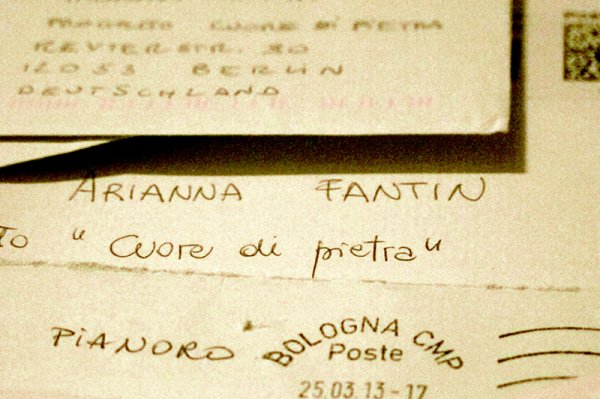 PROGETTO CUORE DI PIETRA
REVIERSTR. 30
12053 BERLIN
DEUTSCHLAND
ARIANNA FANTIN
TO "Cuore di pietra"
PIANORO
BOLOGNA CMP
Poste
25.03.13-17